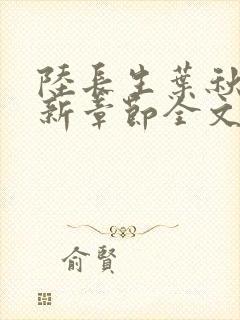 陸長生葉秋
新章節全文
俞賢